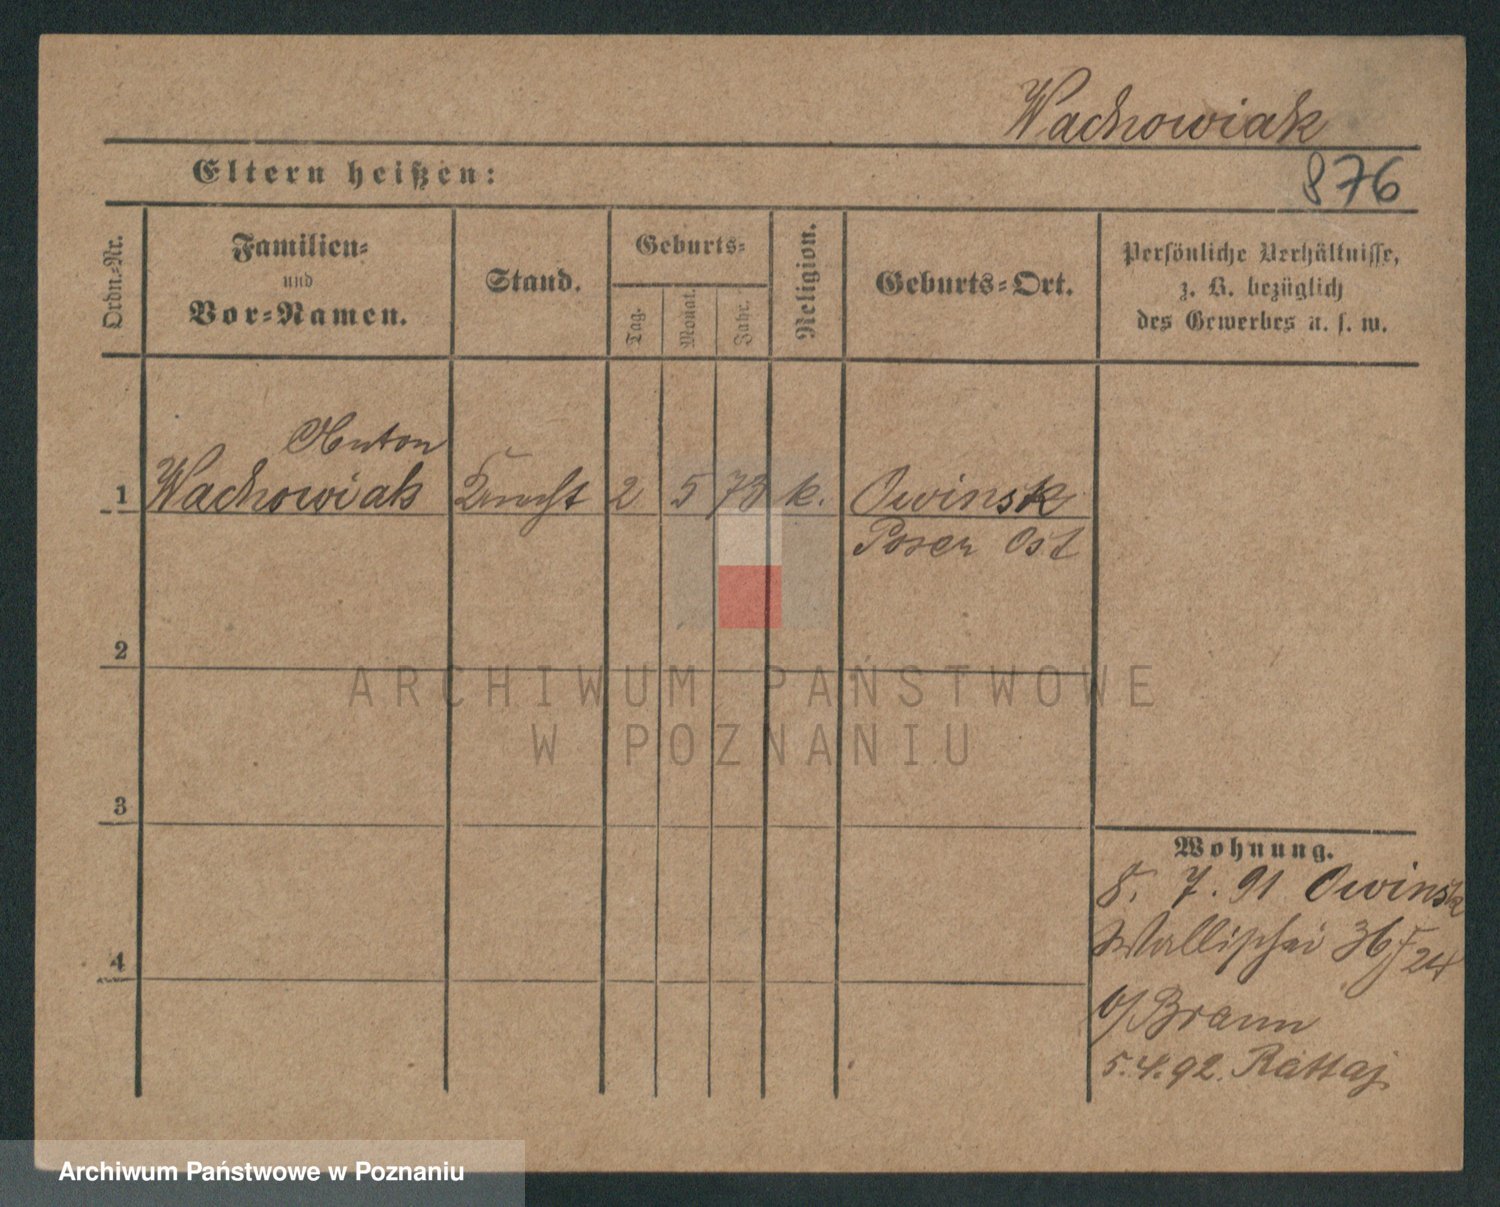 Wachowiak
Eltern heißen:
876
Ordn.-Nr.
Familien-
und
Vor-Namen.
Stand.
Geburts-
Tag.
Monat.
Jahr.
Religion.
Geburts-Ort.
Persönliche Verhältnisse,
z. B. bezüglich
des Gewerbes u. s. w.
Anton
1 Wachowiak Knecht 2 5 73 k. Owinsk
Posen Ost
2
ARCHIWUM PAŃSTWOWE
W POZNANIU
3
Wohnung.
8. 7. 91 Owinsk
Wallischei 36
4
b/ Braun
5.4.92. Rattaj
Archiwum Państwowe w Poznaniu